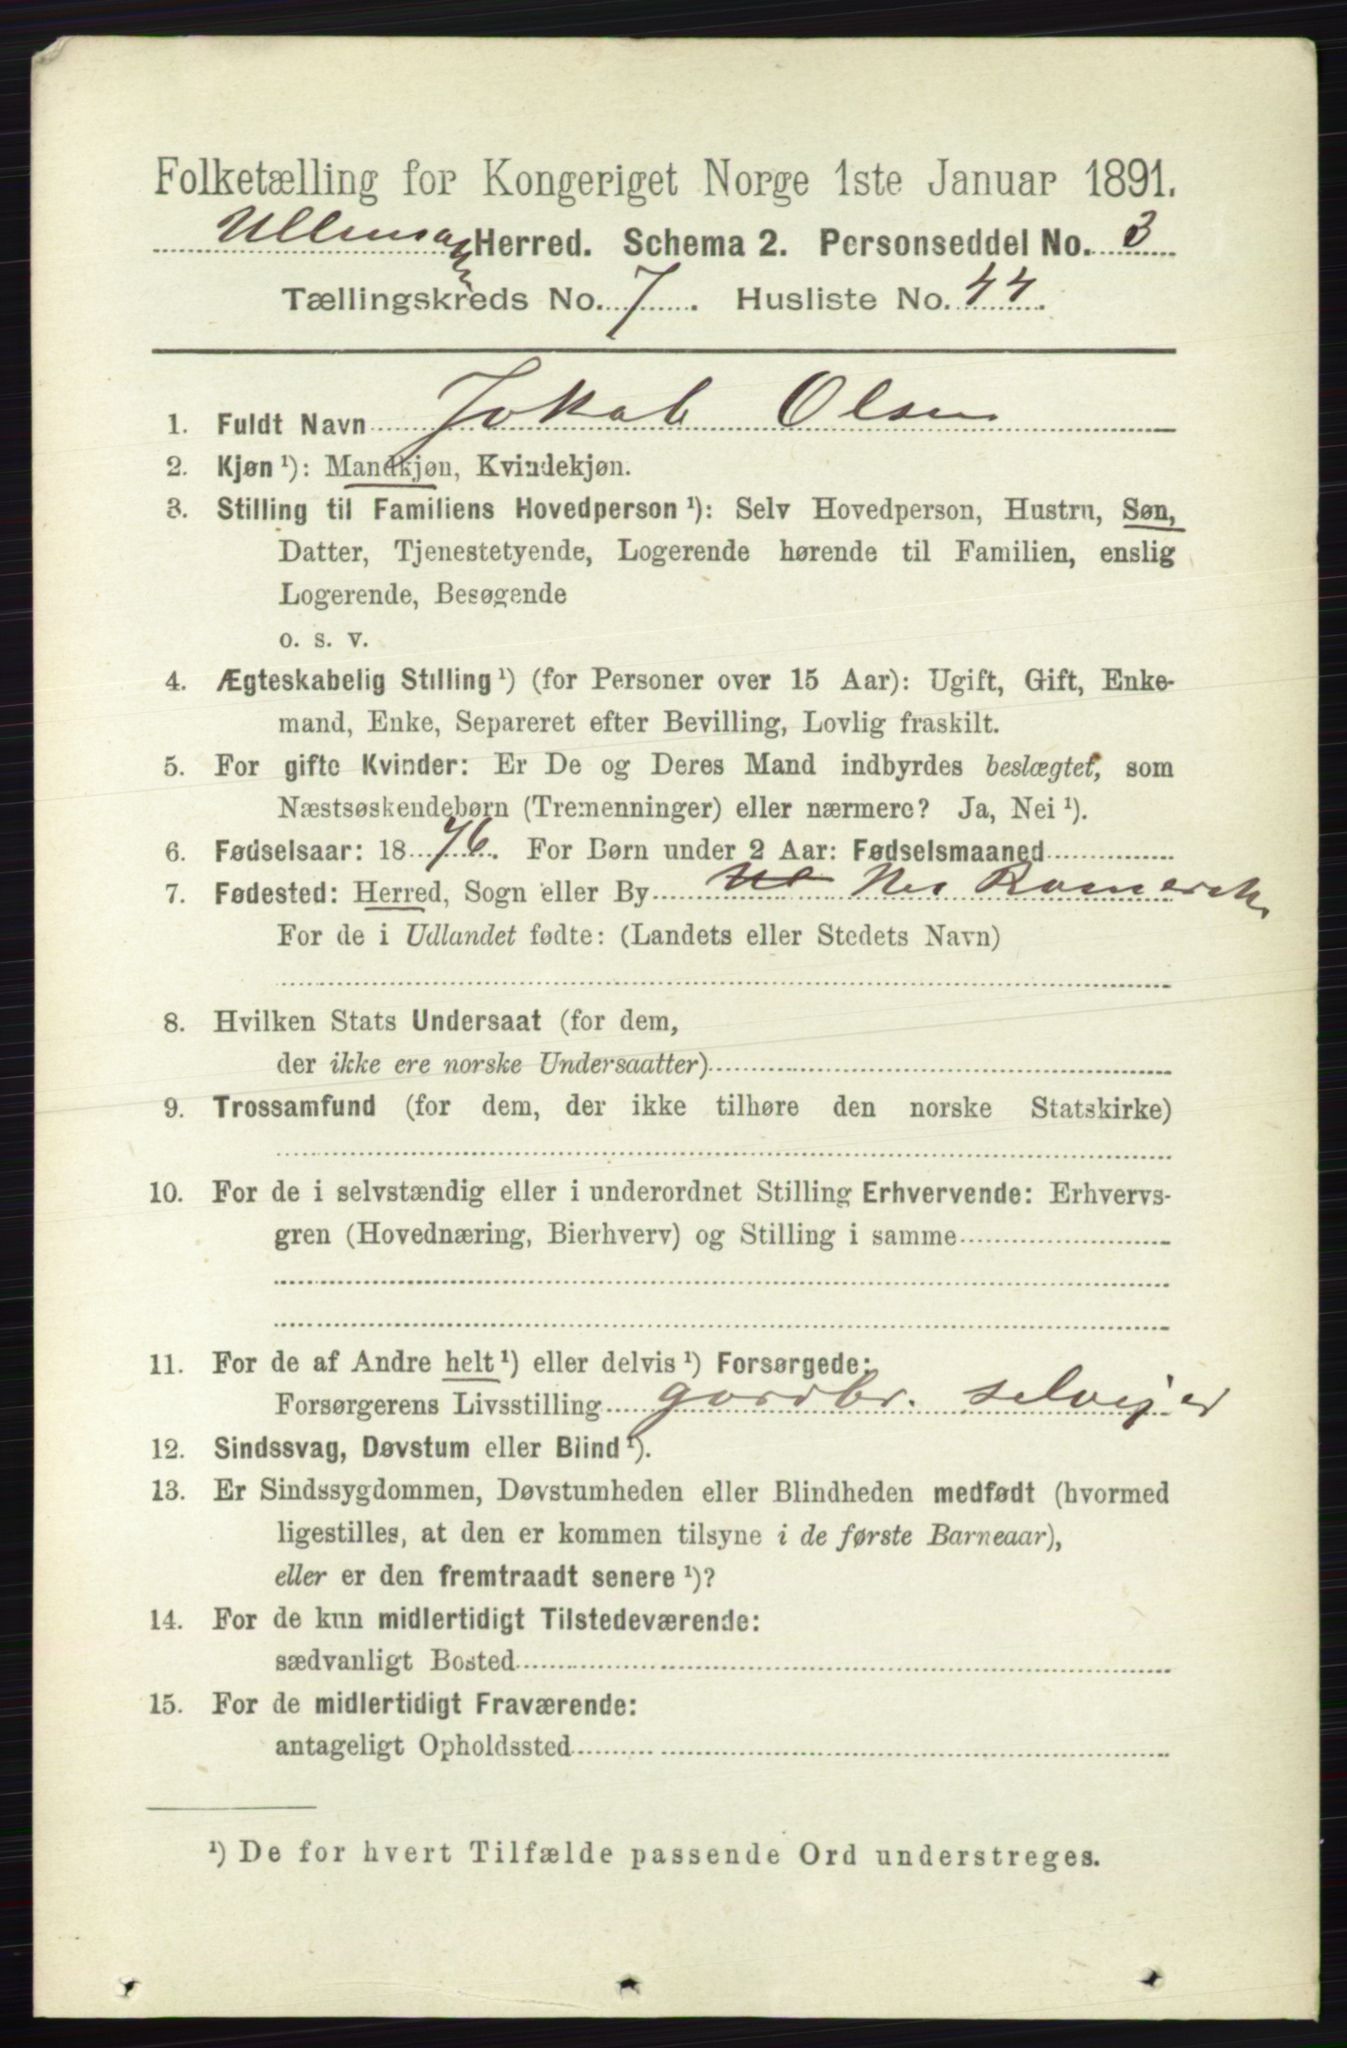 Folketælling for Kongeriget Norge 1ste Januar 1891.
Ullensaker Herred. Schema 2. Personseddel No. 3
Tællingskreds No. 7. Husliste No. 44.
1. Fuldt Navn Jokab Olsen
2. Kjøn ¹): Mandkjøn, Kvindekjøn.
3. Stilling til Familiens Hovedperson ¹): Selv Hovedperson, Hustru, Søn,
Datter, Tjenestetyende, Logerende hørende til Familien, enslig
Logerende, Besøgende
o. s. v.
4. Ægteskabelig Stilling ¹) (for Personer over 15 Aar): Ugift, Gift, Enke-
mand, Enke, Separeret efter Bevilling, Lovlig fraskilt.
5. For gifte Kvinder: Er De og Deres Mand indbyrdes beslægtet, som
Næstsøskendebørn (Tremenninger) eller nærmere? Ja, Nei ¹).
6. Fødselsaar: 1876. For Børn under 2 Aar: Fødselsmaaned
7. Fødested: Herred, Sogn eller By Ul Nes Romerik.
For de i Udlandet fødte: (Landets eller Stedets Navn)
8. Hvilken Stats Undersaat (for dem,
der ikke ere norske Undersaatter)
9. Trossamfund (for dem, der ikke tilhøre den norske Statskirke)
10. For de i selvstændig eller i underordnet Stilling Erhvervende: Erhvervs-
gren (Hovednæring, Bierhverv) og Stilling i samme
11. For de af Andre helt ¹) eller delvis ¹) Forsørgede:
Forsørgerens Livsstilling gardbr. selvejer
12. Sindssvag, Døvstum eller Blind ¹).
13. Er Sindssygdommen, Døvstumheden eller Blindheden medfødt (hvormed
ligestilles, at den er kommen tilsyne i de første Barneaar),
eller er den fremtraadt senere ¹)?
14. For de kun midlertidigt Tilstedeværende:
sædvanligt Bosted
15. For de midlertidigt Fraværende:
antageligt Opholdssted
¹) De for hvert Tilfælde passende Ord understreges.